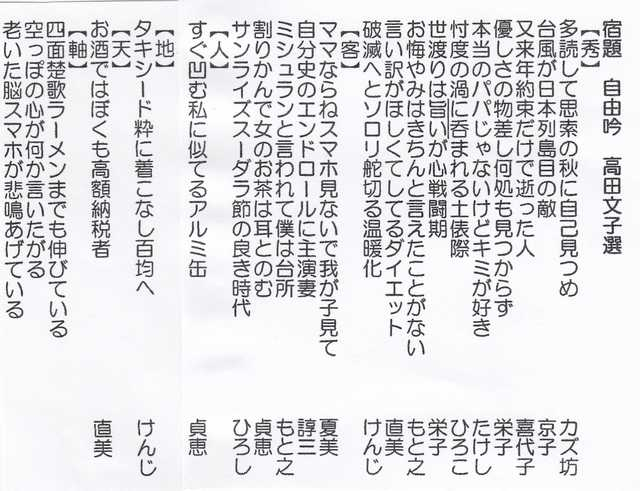 宿題　自由吟　高田文子選
【秀】
多読して思索の秋に自己見つめ　カズ坊
台風が日本列島目の敵　京子
又来年約束だけで逝った人　喜代子
優しさの物差し何処も見つからず　栄子
本当のパパじゃないけどキミが好き　たけし
忖度の渦に呑まれる土俵際　ひろこ
世渡りは旨いが心戦闘期　栄子
お悔やみはきちんと言えたことがない　もと之
言い訳がほしくてしてるダイエット　直美
破滅へとソロリ舵切る温暖化　けんじ
【客】
ママならねスマホ見ないで我が子見て　夏美
自分史のエンドロールに主演妻　諄三
ミシュランと言われて僕は台所　もと之
割りかんで女のお茶は耳とのむ　貞恵
サンライズスーダラ節の良き時代　ひろし
【人】
すぐ凹む私に似てるアルミ缶　貞恵
【地】
タキシード粋に着こなし百均へ　けんじ
【天】
お酒ではぼくも高額納税者　直美
【軸】
四面楚歌ラーメンまでも伸びている
空っぽの心が何か言いたがる
老いた脳スマホが悲鳴あげている